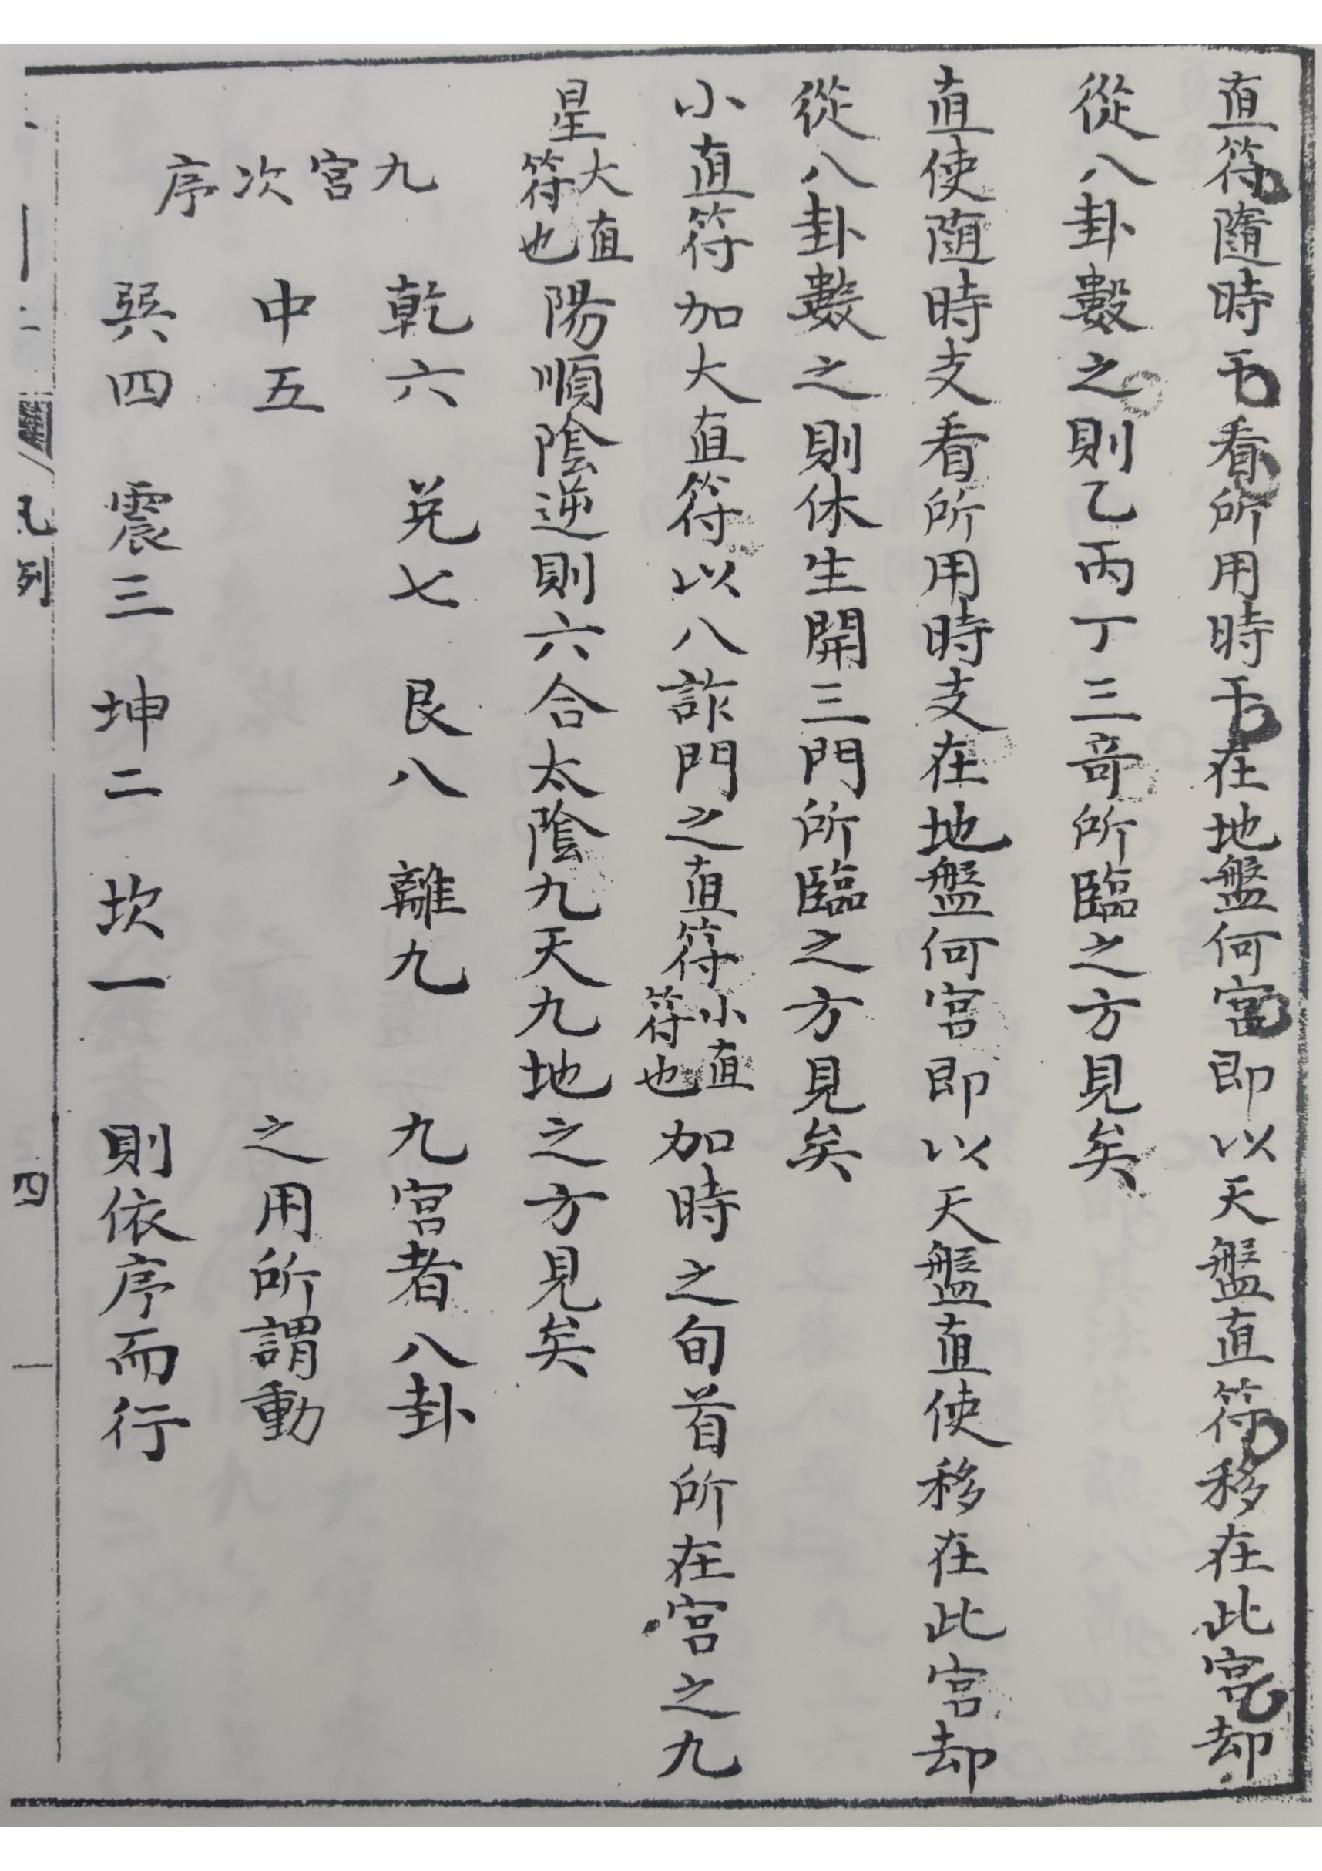 直符隨時干看所用時干在地盤何宮即以天盤直符移在此宮却
從八卦數之則乙丙丁三奇所臨之方見矣
直使随時支看所用時支在地盤何宮即以天盤直使移在此宮却
從八卦數之則休生開三門所臨之方見矣
小直符加大直符以八詐門之直符小直符也加時之旬首所在宮之九
星大直符也陽順陰逆則六合太陰九天九地之方見矣
九宮次序
乾六 兌七 艮八 離九 九宮者八卦
中五 之用所謂動
巽四 震三 坤二 坎一 則依序而行
凡列
四